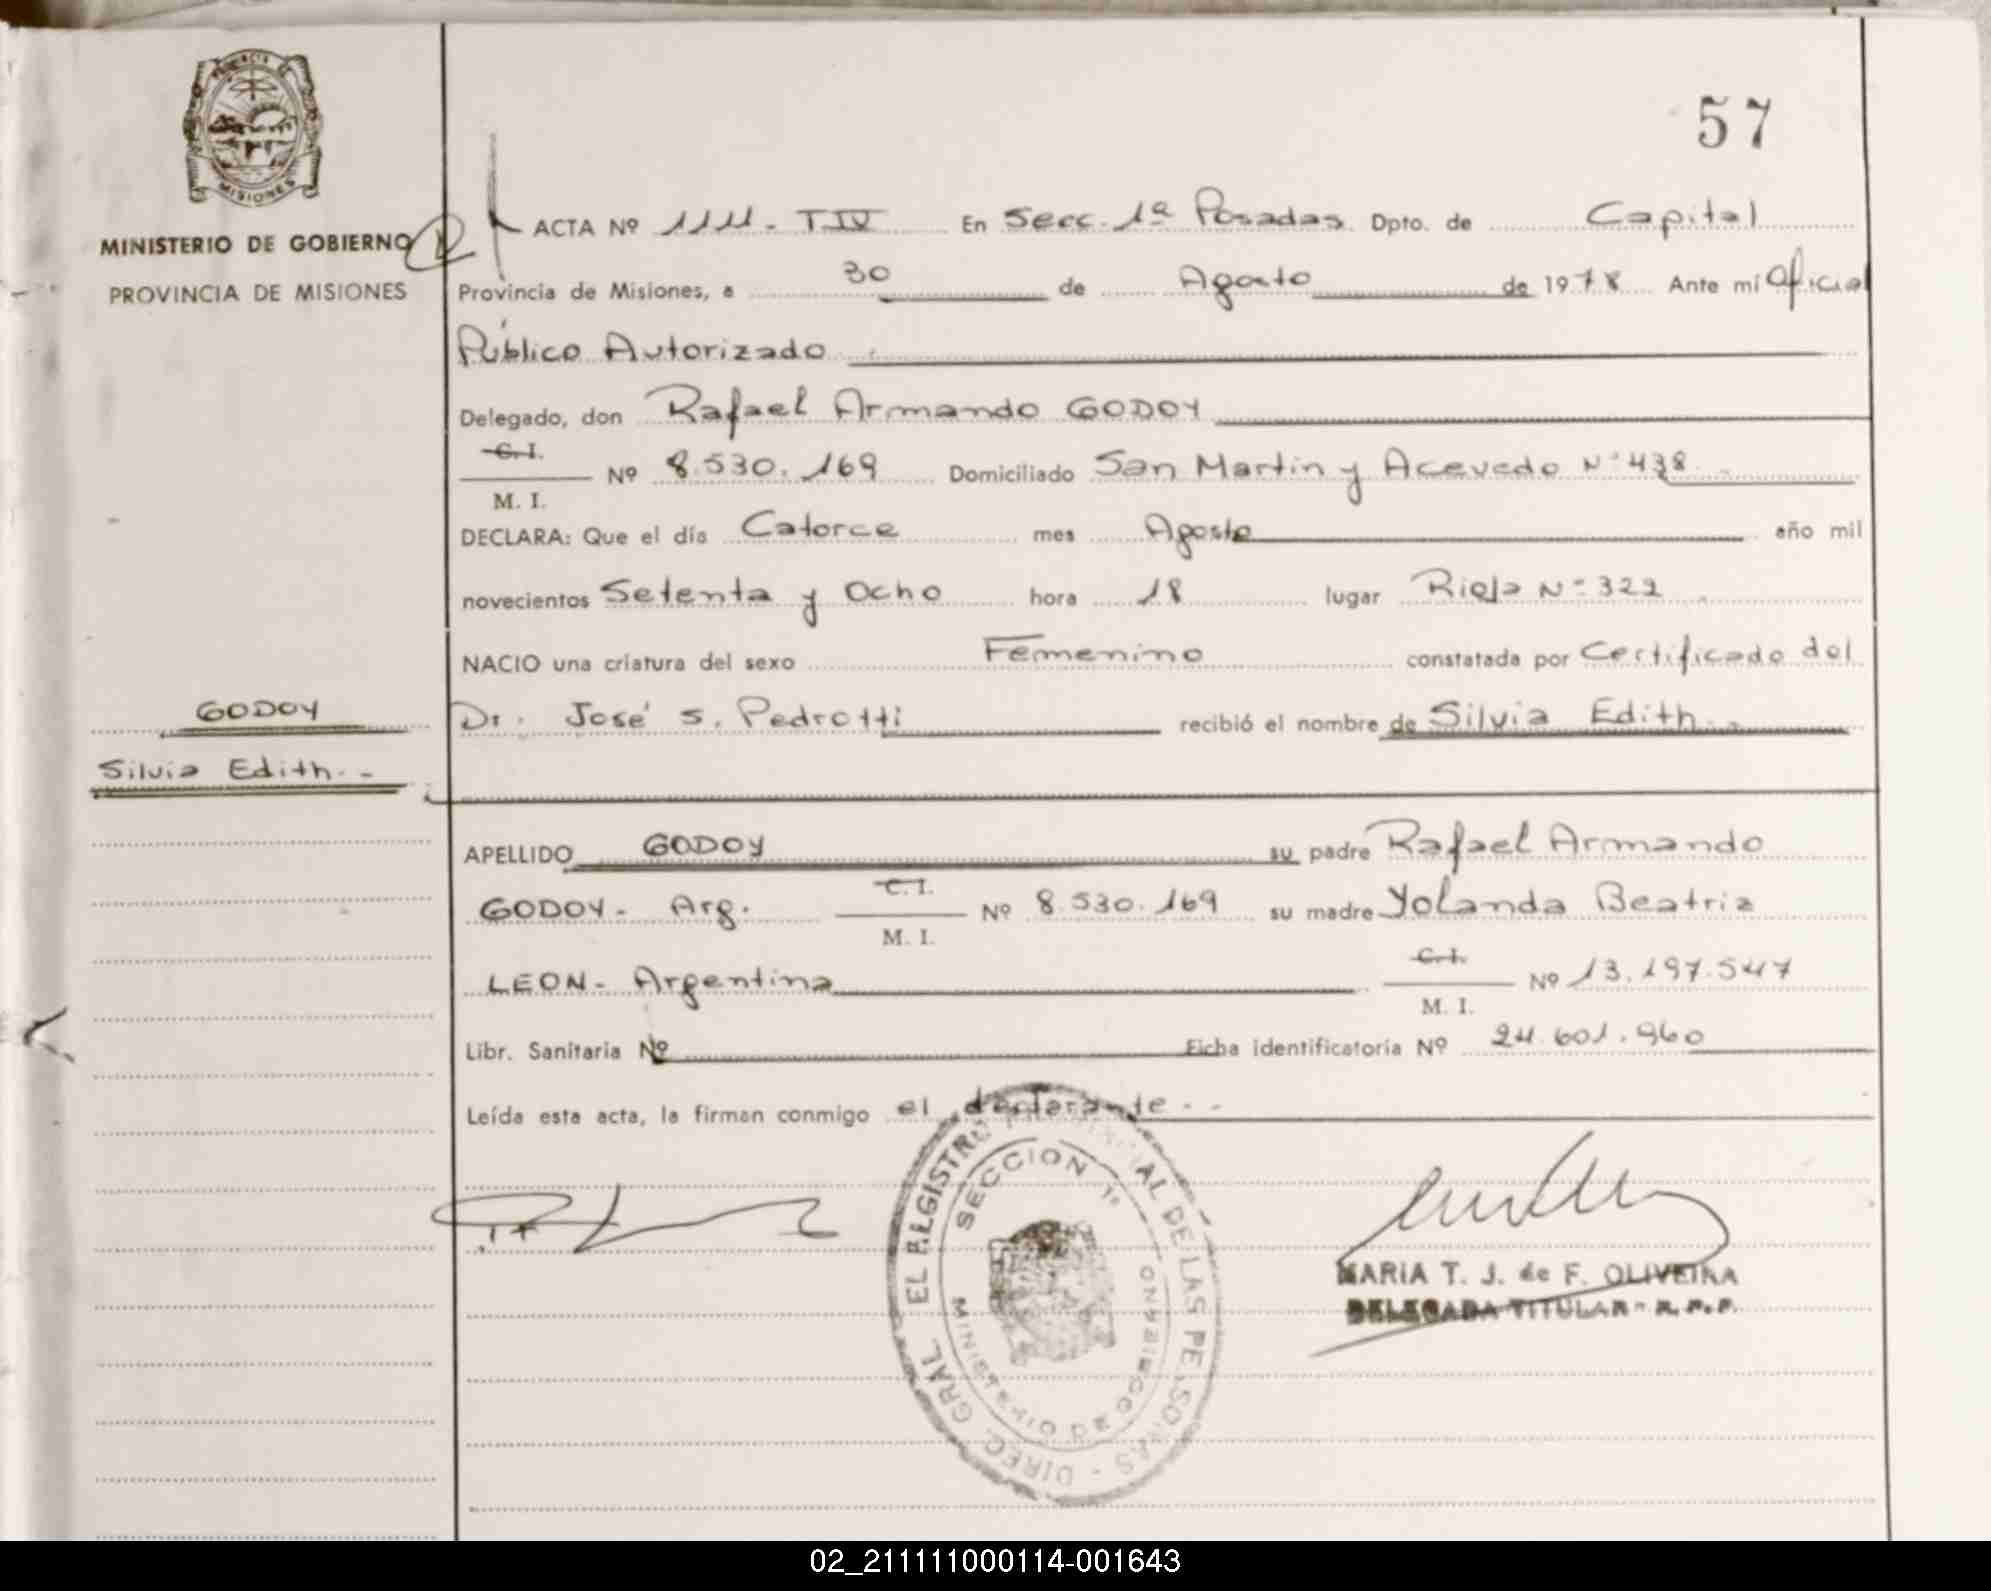 57
PROVINCIA DE
MISIONES
MINISTERIO DE GOBIERNO
PROVINCIA DE MISIONES
ACTA Nº 1111 - T IV En Secc. 1ª Posadas Dpto. de Capital
Provincia de Misiones, a 30 de Agosto de 1978 Ante mí Oficial
Público Autorizado
Delegado, don Rafael Armando GODOY
C. I.
M. I.
Nº 8.530.169 Domiciliado San Martin y Acevedo Nº 438
DECLARA: Que el día Catorce mes Agosto año mil
novecientos Setenta y Ocho hora 18 lugar Rioja Nº 322
NACIO una criatura del sexo Femenino constatada por Certificado del
Dr. José S. Pedrotti recibió el nombre de Silvia Edith.-
GODOY
Silvia Edith.-
APELLIDO GODOY su padre Rafael Armando
GODOY - Arg. C. I. M. I. Nº 8.530.169 su madre Yolanda Beatriz
LEON - Argentina C. I. M. I. Nº 13.197.547
Libr. Sanitaria Nº Ficha identificatoria Nº 24.601.960
Leída esta acta, la firman conmigo el declarante.-
DIREC. GRAL. EL REGISTRO PROVINCIAL DE LAS PERSONAS
SECCION 1ª
MINISTERIO DE GOBIERNO
MARIA T. J. de F. OLIVEIRA
DELEGADA TITULAR - R. P. P.
02_211111000114-001643